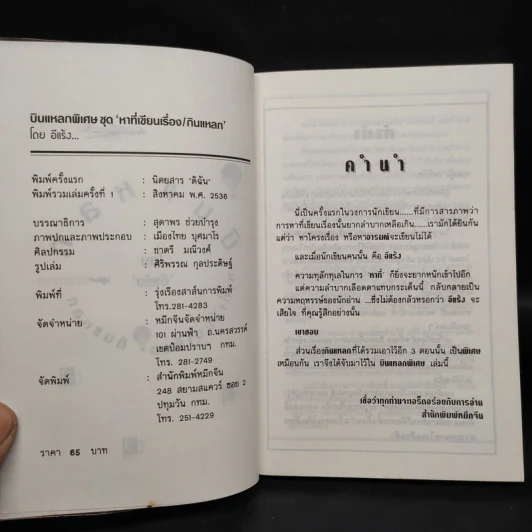 บินแหลกพิเศษ ชุด 'หาที่เขียนเรื่อง/กินแหลก'
โดย อีแร้ง...
พิมพ์ครั้งแรก : นิตยสาร 'ดิฉัน'
พิมพ์รวมเล่มครั้งที่ 1 : สิงหาคม พ.ศ. 2536
บรรณาธิการ : สุดาพร ช่วยบำรุง
ภาพปกและภาพประกอบ : เมืองไทย บุศมาโร
ศิลปกรรม : ยาตรี มณีวงศ์
รูปเล่ม : ศิริพรรณ กุลประดิษฐ์
พิมพ์ที่ : รุ่งเรืองสาส์นการพิมพ์
โทร.281-4283
จัดจำหน่าย : หมึกจีนจัดจำหน่าย
101 ผ่านฟ้า ถ.นครสวรรค์
เขตป้อมปราบฯ กทม.
โทร. 281-2749
จัดพิมพ์ : สำนักพิมพ์หมึกจีน
248 สยามสแควร์ ซอย 2
ปทุมวัน กทม.
โทร. 251-4229
ราคา 65 บาท
คำนำ
นี่เป็นครั้งแรกในวงการนักเขียน......ที่มีการสารภาพว่า
การหาที่เขียนเรื่องนั้นยากลำบากเหลือเกิน....เรามักได้ยินกัน
แต่ว่า หาโครงเรื่อง หรือหาอารมณ์จะเขียนไม่ได้
และเมื่อนักเขียนคนนั้น คือ อีแร้ง
ความทุลักทุเลในการ 'หาที่' ก็ยิ่งจะยากหนักเข้าไปอีก
แต่ความลำบากเลือดตาแทบกระเด็นนี้ กลับกลายเป็น
ความหฤหรรษ์ของนักอ่าน ...ซึ่งไม่ต้องกลัวหรอกว่า อีแร้ง จะ
เสียใจ ที่คุณรู้สึกอย่างนั้น
เขาชอบ
ส่วนเรื่องกินแหลกที่ได้รวมเอาไว้อีก 3 ตอนนั้น เป็นพิเศษ
เหมือนกัน เราจึงได้จับมาไว้ใน บินแหลกพิเศษ เล่มนี้
เชื่อว่าทุกท่านจะเอร็ดอร่อยกับการอ่าน
สำนักพิมพ์หมึกจีน